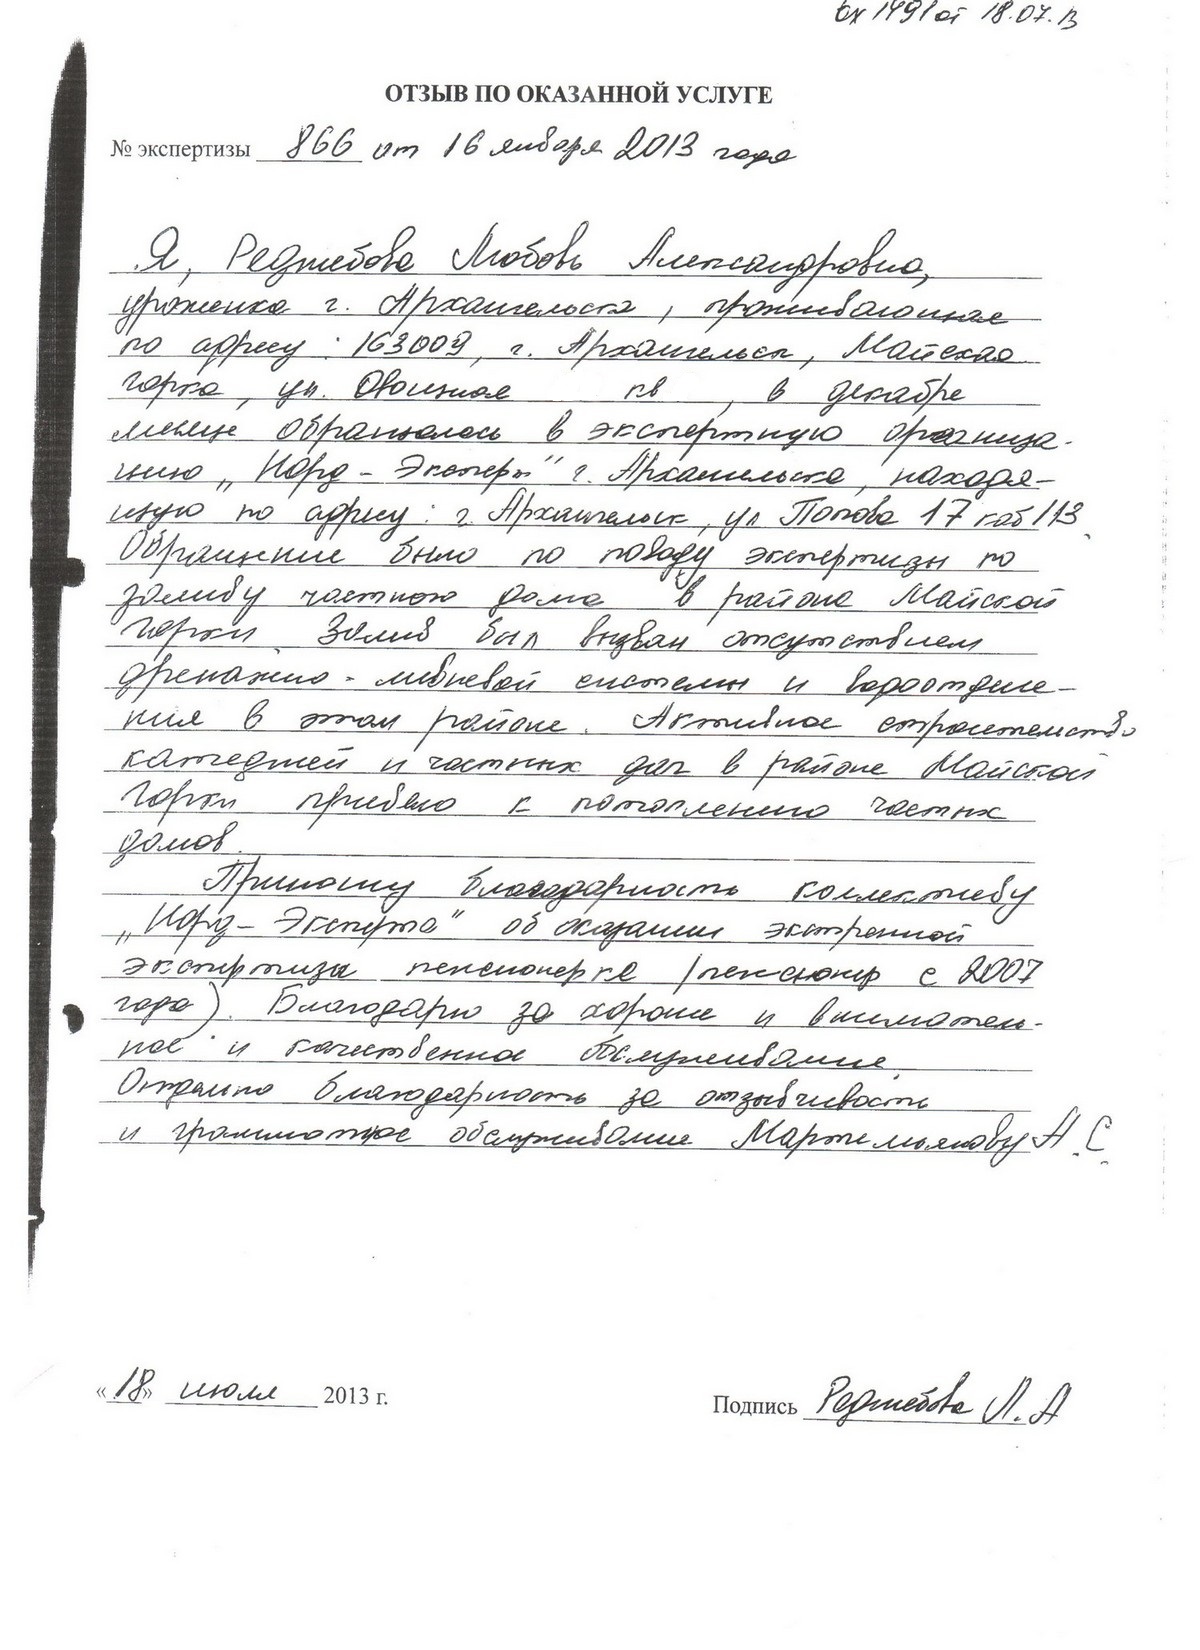 вх 1491 от 18.07.13
ОТЗЫВ ПО ОКАЗАННОЙ УСЛУГЕ
№ экспертизы 866 от 16 января 2013 года
Я, Реджебова Любовь Александровна,
уроженка г. Архангельска, проживающая
по адресу: 163009, г. Архангельск, Майская
горка, ул. Овощная кв , в декабре
месяце обращалась в экспертную организа-
цию „Норд-Эксперт" г. Архангельска, находя-
щуюся по адресу: г. Архангельск, ул Попова 17 каб 113.
Обращение было по поводу экспертизы по
заливу частного дома в районе Майской
Горки Залив был вызван отсутствием
дренажно-ливневой системы и водоотделе-
ния в этом районе. Активное строительство
катеджей и частных дач в районе Майской
Горки привело к потоплению частных
домов.
Приношу благодарность коллективу
„Норд-Эксперта" об оказании экстренной
экспертизы пенсионерке (пенсионер с 2007
года). Благодарю за хорошее и вниматель-
ное и качественное обслуживание.
Отдельно благодарность за отзывчивость
и грамотное обслуживание Мартемьянову А.С.
«18» июля 2013 г.
Подпись Реджебова Л.А